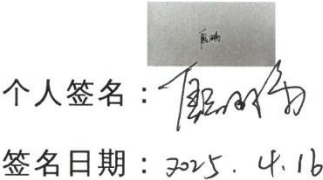 个人签名：
签名日期：2025.4.16